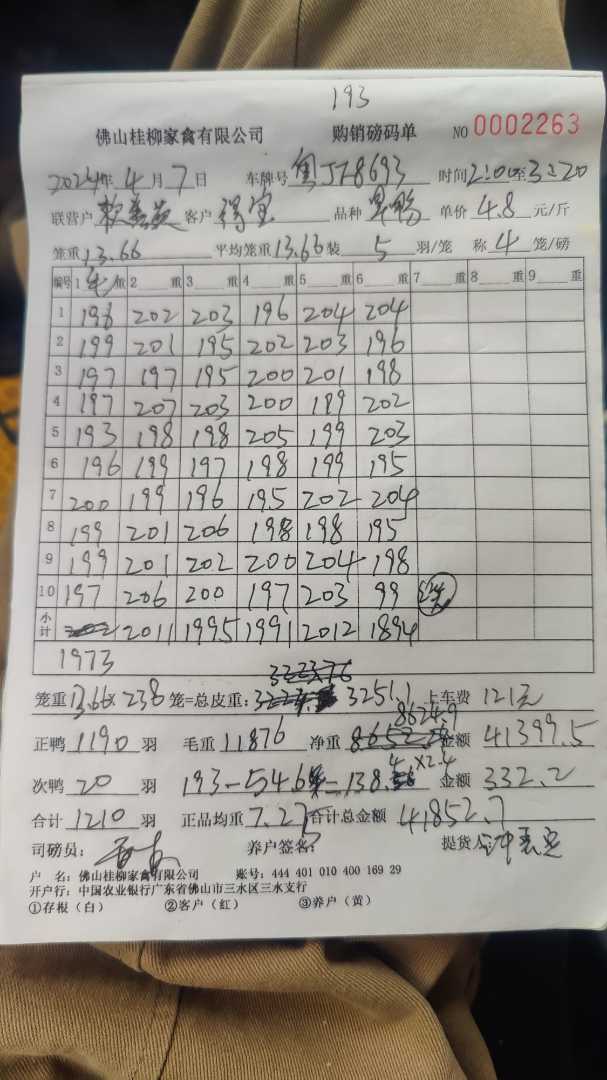 193
佛山桂柳家禽有限公司 购销磅码单 NO 0002263
2024年 4月 7日 车牌号 粤J78693 时间 2:00至3:20
联营户 客户 得宝 品种 单价 4.8 元/斤
笼重 13.66 平均笼重 13.66 装 5 羽/笼 称 4 笼/磅
编号 1 重 2 重 3 重 4 重 5 重 6 重 7 重 8 重 9 重
1 198 202 203 196 204 204
2 199 201 195 202 203 196
3 197 197 195 200 201 198
4 197 207 203 200 199 202
5 193 198 198 205 199 203
6 196 199 197 198 199 195
7 200 199 196 195 202 204
8 199 201 206 198 198 195
9 199 201 202 200 204 198
10 197 206 200 197 203 99
小计 2011 1995 1991 2012 1894
1973
笼重 13.66x 238 笼=总皮重: 3251.1 卡车费 121元
正鸭 1190 羽 毛重 11876 净重 8624.9 金额 41399.5
次鸭 20 羽 193-54.6=138.4 x2.4 金额 332.2
合计 1210 羽 正品均重 7.25 合计总金额 41852.7
司磅员: 养户签名: 提货人:
户 名: 佛山桂柳家禽有限公司 账号: 444 401 010 400 169 29
开户行: 中国农业银行广东省佛山市三水区三水支行
①存根(白) ②客户(红) ③养户(黄)